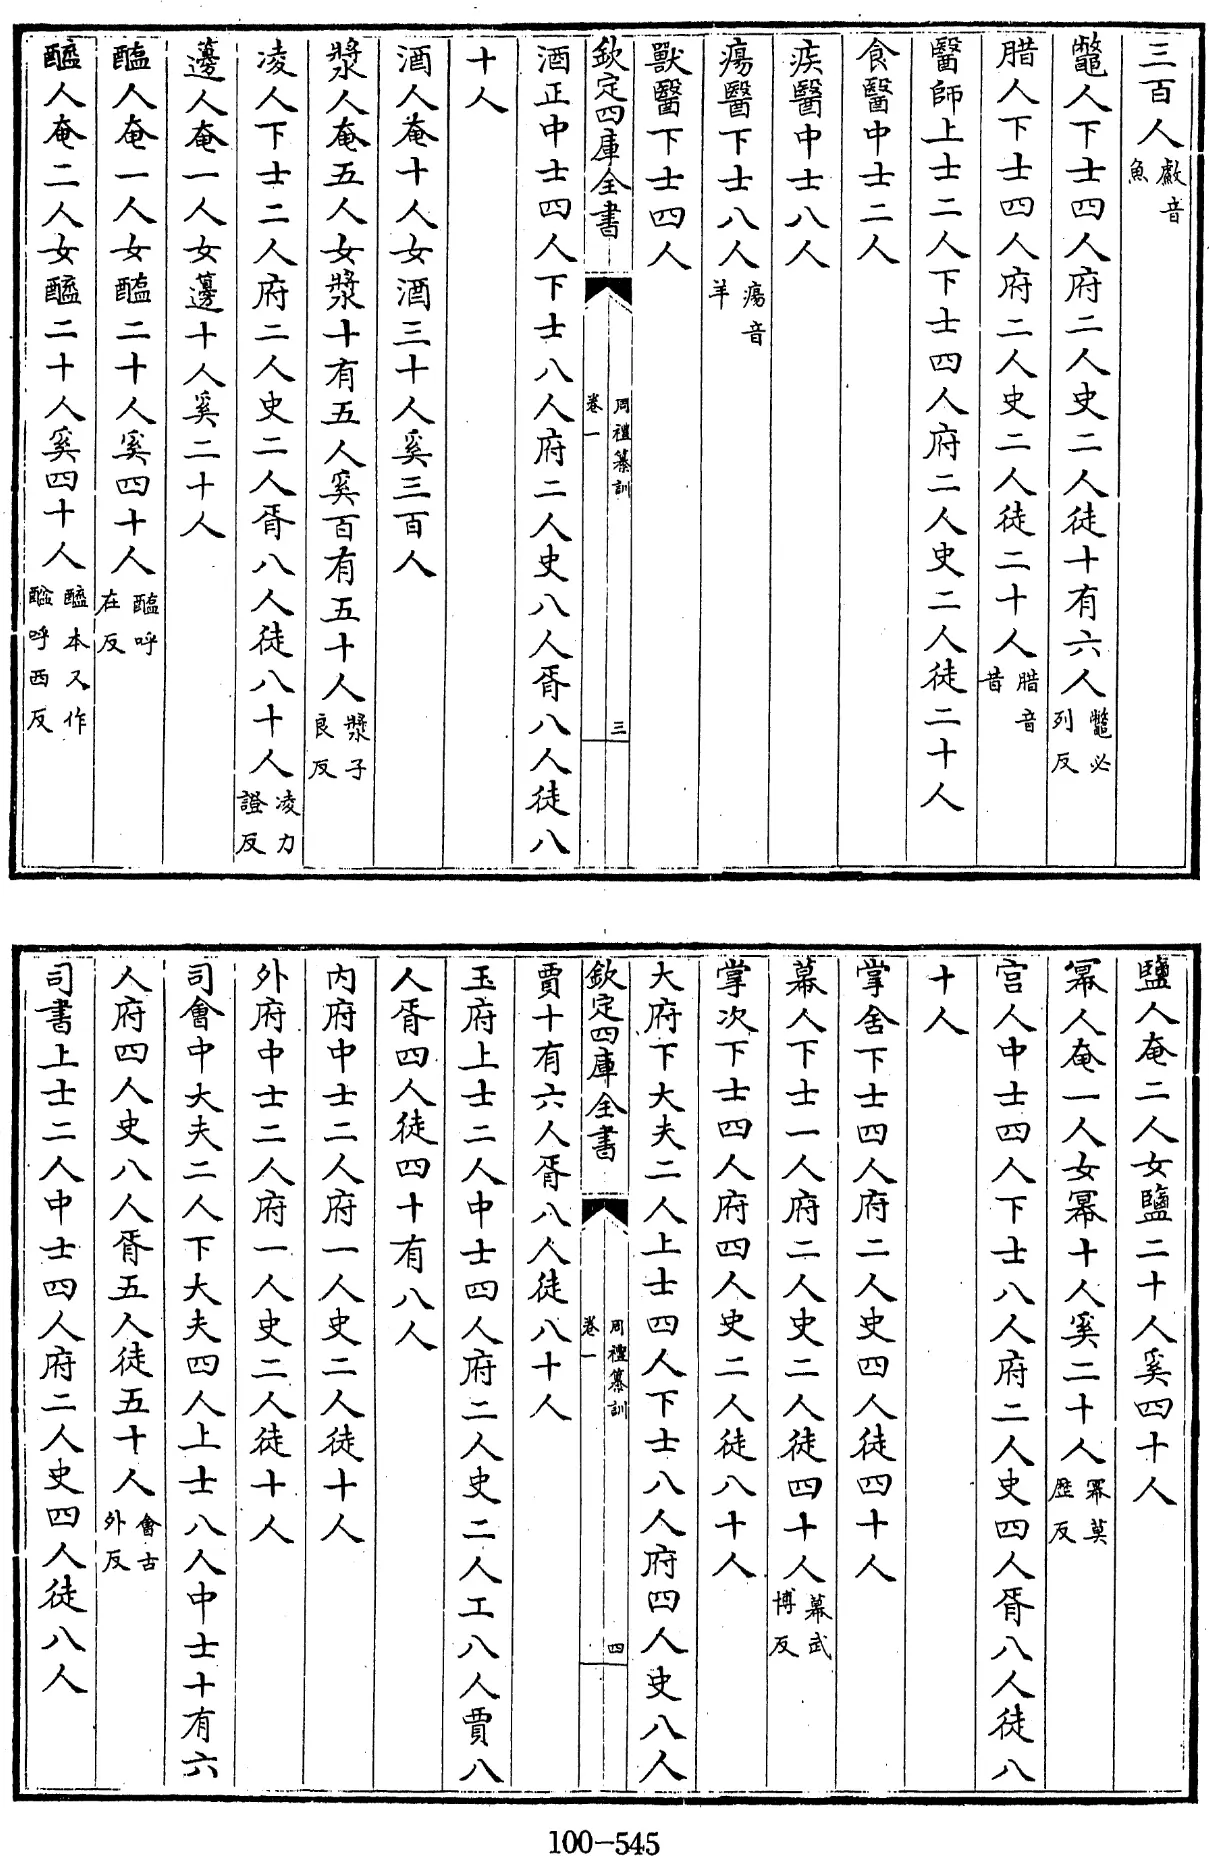 三百人䱷音魚
鼈人下士四人府二人史二人徒十有六人鼈必列反
腊人下士四人府二人史二人徒二十人腊音昔
醫師上士二人下士四人府二人史二人徒二十人
食醫中士二人
疾醫中士八人
瘍醫下士八人瘍音羊
獸醫下士四人
欽定四庫全書
周禮纂訓
卷一
三
酒正中士四人下士八人府二人史八人胥八人徒八
十人
酒人奄十人女酒三十人奚三百人
漿人奄五人女漿十有五人奚百有五十人漿子良反
凌人下士二人府二人史二人胥八人徒八十人凌力證反
籩人奄一人女籩十人奚二十人
醢人奄一人女醢二十人奚四十人醢呼在反
醯人奄二人女醯二十人奚四十人醯本又作醯呼西反
鹽人奄二人女鹽二十人奚四十人
冪人奄一人女冪十人奚二十人冪莫歷反
宫人中士四人下士八人府二人史四人胥八人徒八
十人
掌舍下士四人府二人史四人徒四十人
幕人下士一人府二人史二人徒四十人幕武博反
掌次下士四人府四人史二人徒八十人
大府下大夫二人上士四人下士八人府四人史八人
欽定四庫全書
周禮纂訓
卷一
四
賈十有六人胥八人徒八十人
玉府上士二人中士四人府二人史二人工八人賈八
人胥四人徒四十有八人
内府中士二人府一人史二人徒十人
外府中士二人府一人史二人徒十人
司會中大夫二人下大夫四人上士八人中士十有六
人府四人史八人胥五人徒五十人會古外反
司書上士二人中士四人府二人史四人徒八人
100-545